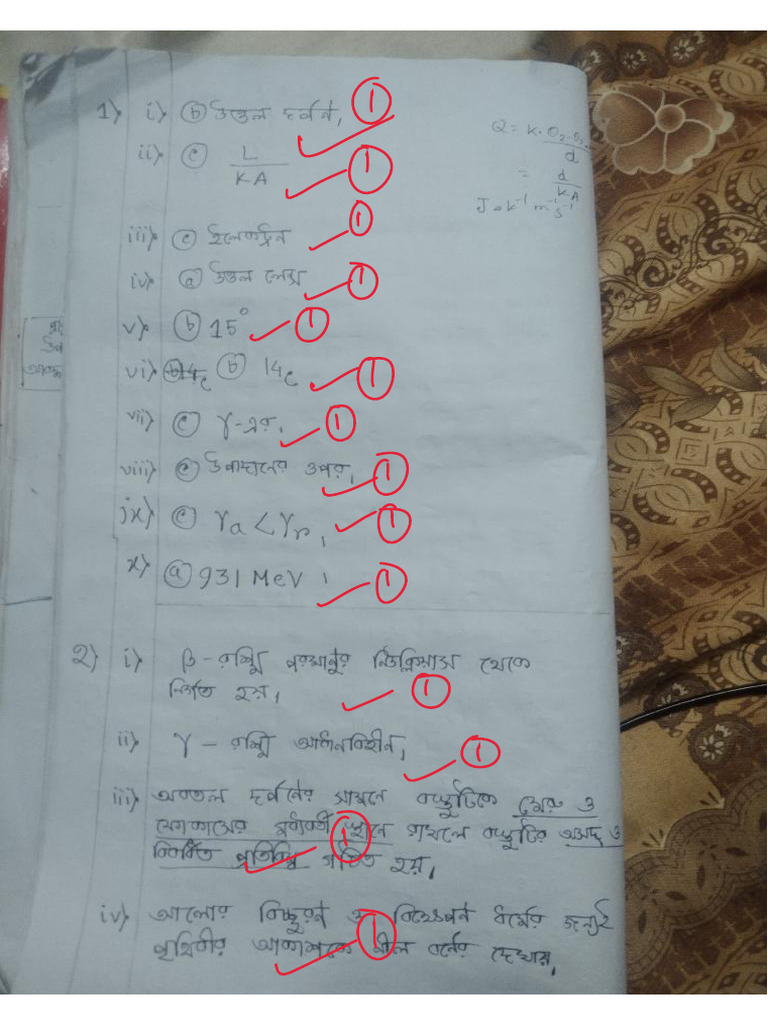 1) i) ⓑ উত্তল দর্পন, 1
ii) ⓒ L / KA 1
Q = K.θ₂-θ₁ / d
= d / KA
J • K⁻¹ m⁻¹ s⁻¹
iii) ⓒ ইলেকট্রন 1
iv) ⓐ উত্তল লেন্স 1
v) ⓑ 15° 1
vi) ⓑ 14c 1
vii) ⓒ γ-এর, 1
viii) ⓒ উপাদানের ওপর, 1
ix) ⓒ γa < γr, 1
x) ⓐ 931 MeV 1
২) i) β-রশ্মি পরমানুর নিউক্লিয়াস থেকে
নির্গত হয়, 1
ii) γ - রশ্মি আধানবিহীন, 1
iii) অবতল দর্পনের সামনে বস্তুটিকে মেরু ও
ফোকাসের মধ্যবর্তী স্থানে রাখলে বস্তুটির অসদ ও
বিবর্ধিত প্রতিবিম্ব গঠিত হয়, 1
iv) আলোর বিচ্ছুরন ও বিক্ষেপন ধর্মের জন্যই
পৃথিবীর আকাশকে নীল বর্নের দেখায়, 1